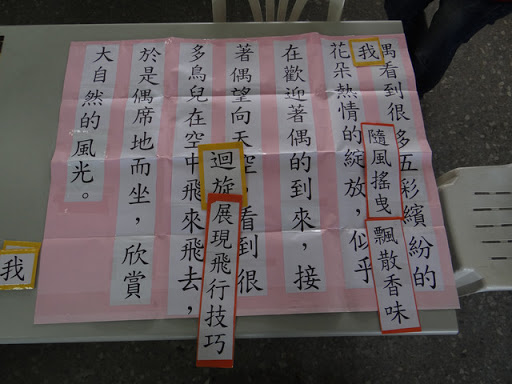 偶看到很多五彩繽紛的
花朵熱情的綻放,似乎
在歡迎著偶的到來,接
著偶望向天空,看到很
多鳥兒在空中飛來飛去,
於是偶席地而坐,欣賞
大自然的風光。
我
隨風搖曳
飄散香味
迴旋
展現飛行技巧
我